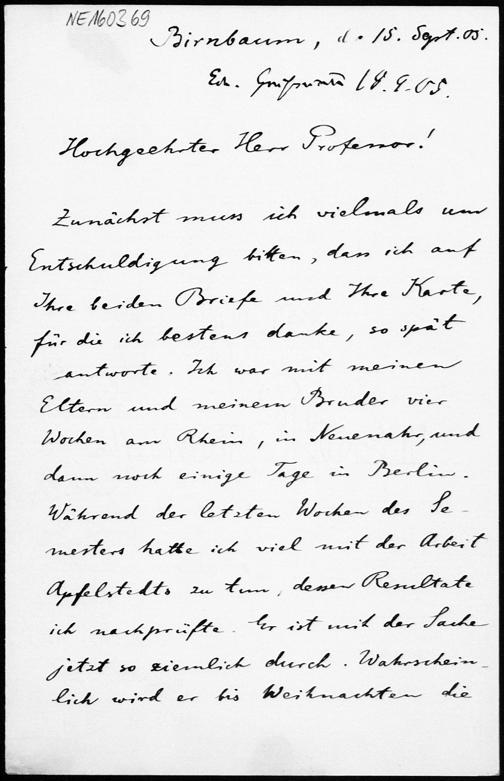 NE160369
Birnbaum, d. 15. Sept. 05.
18.9.05.
Hochgeehrter Herr Professor!
Zunächst muss ich vielmals um
Entschuldigung bitten, dass ich auf
Ihre beiden Briefe und Ihre Karte,
für die ich bestens danke, so spät
antworte. Ich war mit meinen
Eltern und meinem Bruder vier
Wochen am Rhein, in Neuenahr, und
dann noch einige Tage in Berlin.
Während der letzten Wochen des Se-
mesters hatte ich viel mit der Arbeit
Apfelstedts zu tun, dessen Resultate
ich nachprüfte. Er ist mit der Sache
jetzt so ziemlich durch. Wahrschein-
lich wird er bis Weihnachten die